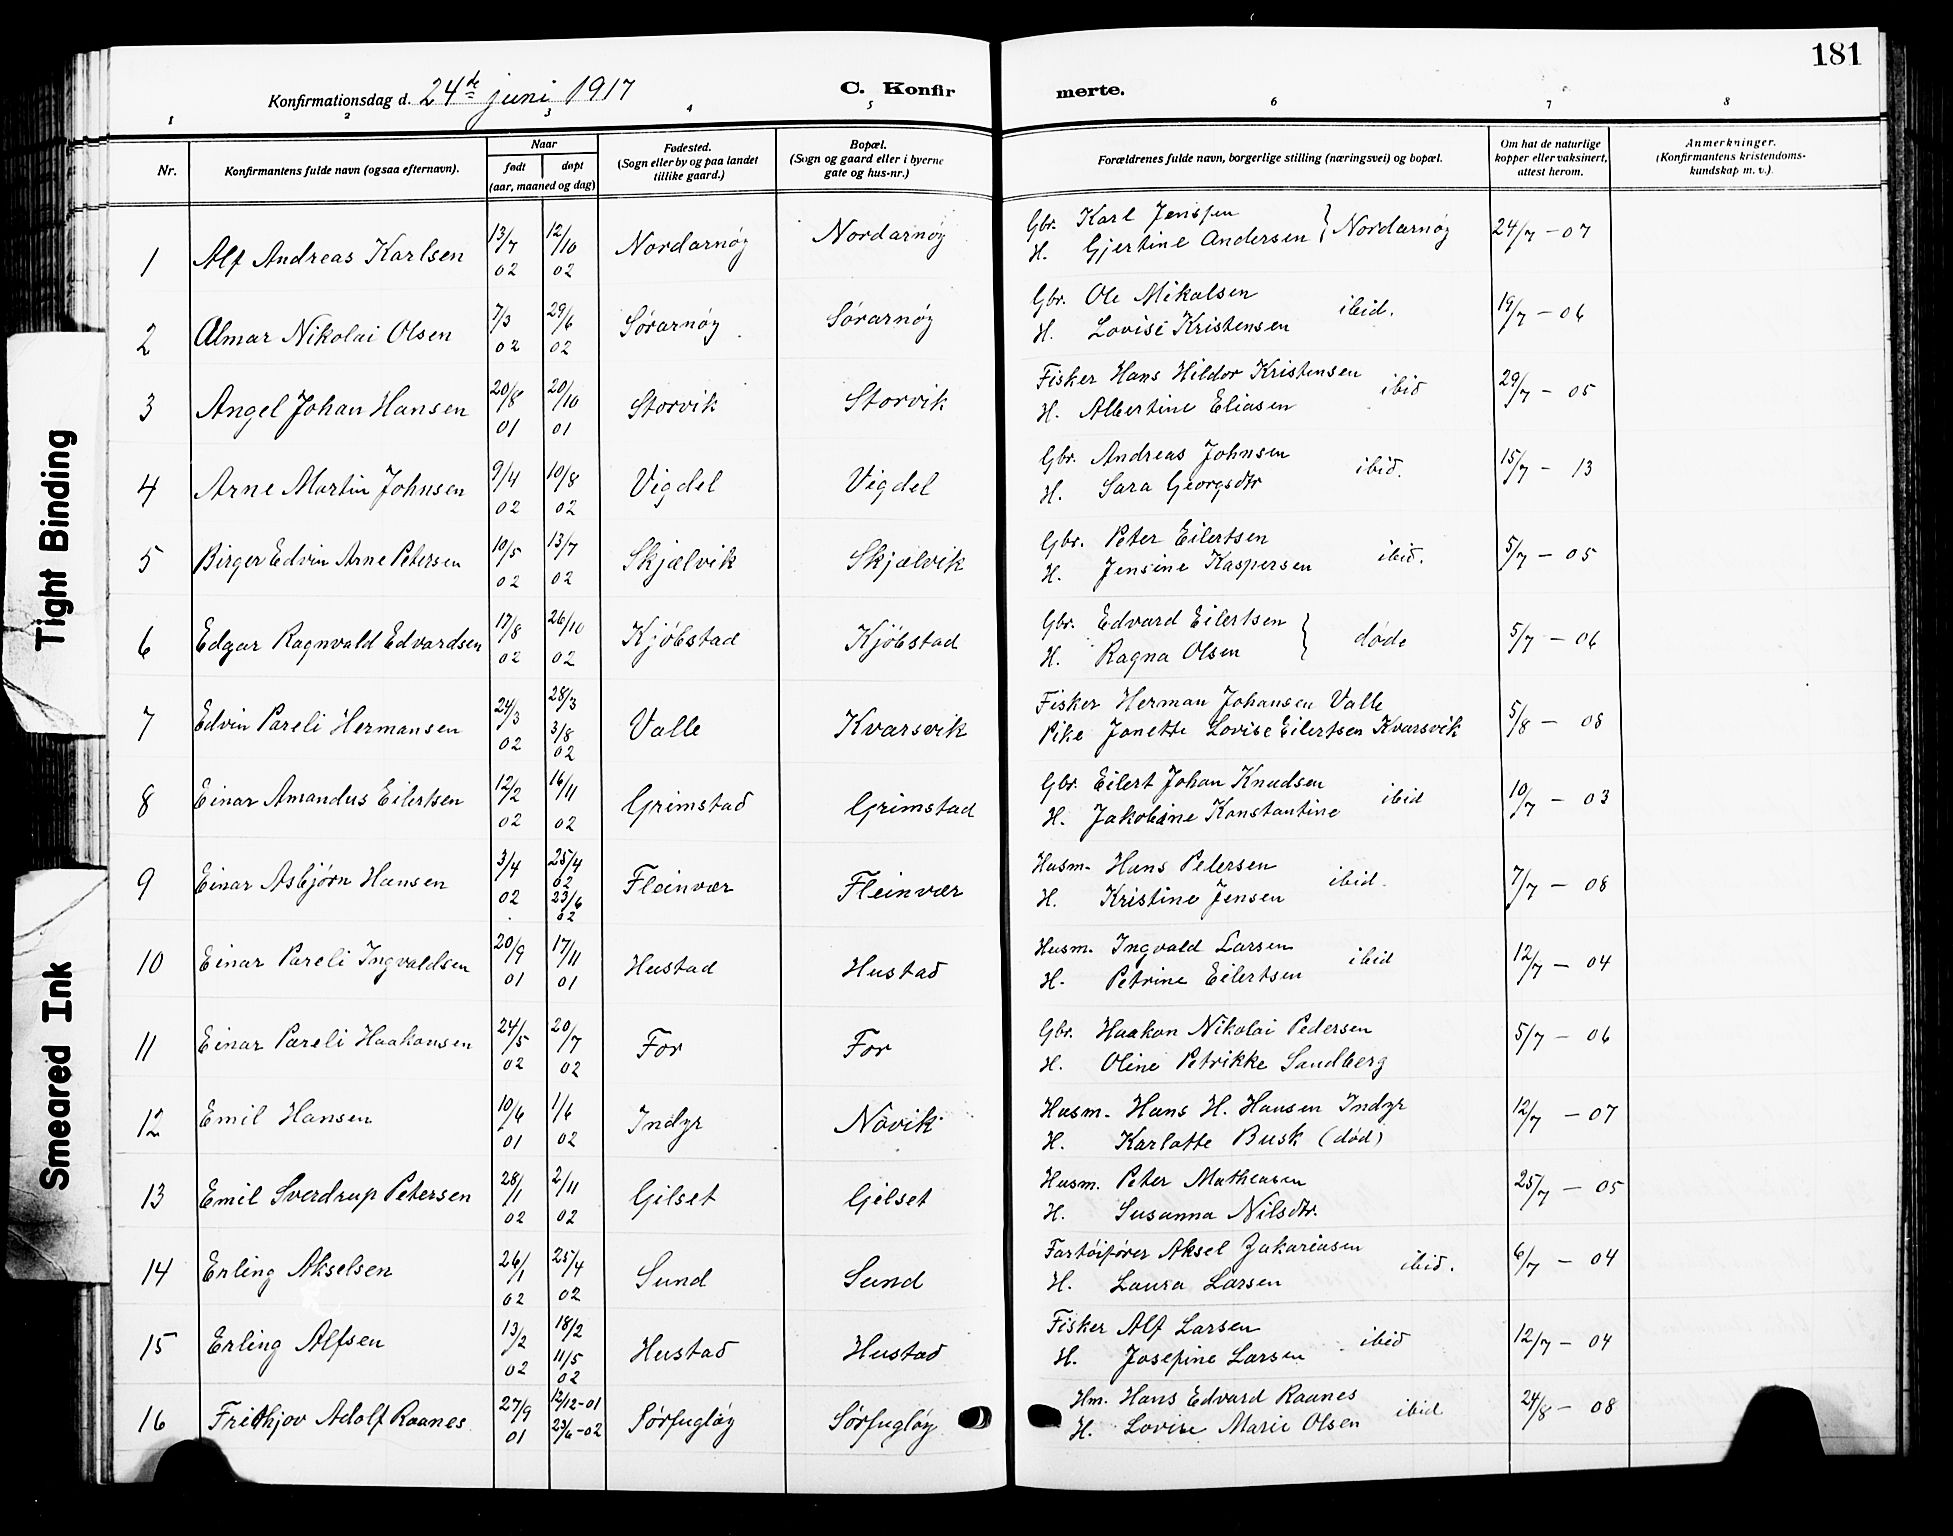 181
Konfirmationsdag d. 24de juni 1917 C. Konfirmerte.
1 2 3 4 5 6 7 8
Nr. Konfirmantens fulde navn (ogsaa efternavn). Naar født døpt (aar, maaned og dag) Fødested. (Sogn eller by og paa landet tillike gaard.) Bopæl. (Sogn og gaard eller i byerne gate og hus-nr.) Forældrenes fulde navn, borgerlige stilling (næringsvei) og bopæl. Om hat de naturlige kopper eller vaksinert, attest herom. Anmerkninger. (Konfirmantens kristendoms-kundskap m. v.).
1 Alf Andreas Karlsen 13/7 02 12/10 02 Nordarnøy Nordarnøy Gbr. Karl Jenssen } Nordarnøy 24/7 - 07
H. Gjertine Andersen
2 Almar Nikolai Olsen 7/3 02 29/6 02 Sørarnøy Sørarnøy Gbr. Ole Mikalsen ibid. 19/7 - 06
H. Lovise Kristensen
3 Angel Johan Hansen 20/8 01 20/10 01 Storvik Storvik Fisker Hans Hildor Kristensen ibid 29/7 - 05
H. Albertine Eliasen
4 Arne Martin Johnsen 9/4 02 10/8 02 Vigdel Vigdel Gbr. Andreas Johnsen ibid. 15/7 - 13
H. Sara Georgsdtr
5 Birger Edvin Arne Petersen 10/5 02 13/7 02 Skjælvik Skjælvik Gbr. Peter Eilertsen ibid. 5/7 - 05
H. Jensine Kaspersen
6 Edgar Ragnvald Edvardsen 17/8 02 26/10 02 Kjøbstad Kjøbstad Gbr. Edvard Eilertsen } døde 5/7 - 06
H. Ragna Olsen
7 Edvin Pareli Hermansen 24/3 02 28/3 3/8 02 Valle Kvarsvik Fisker Herman Johansen Valle 5/8 - 08
Pike Janette Lovise Eilertsen Kvarsvik
8 Einar Amandus Eilertsen 12/2 02 16/11 02 Grimstad Grimstad Gbr. Eilert Johan Knudsen ibid 10/7 - 03
H. Jakobine Konstantine
9 Einar Asbjørn Hansen 3/4 02 25/4 02 23/6 02 Fleinvær Fleinvær Husm. Hans Petersen ibid. 7/7 - 08
H. Kristine Jensen
10 Einar Pareli Ingvaldsen 20/9 01 17/11 01 Hustad Hustad Husm. Ingvald Larsen ibid 12/7 - 04
H. Petrine Eilertsen
11 Einar Pareli Haakonsen 24/5 02 20/7 02 For For Gbr. Haakon Nikolai Pedersen 5/7 - 06
H. Oline Petrikke Sandberg
12 Emil Hansen 10/6 01 1/6 02 Indyr Novik Husm. Hans H. Hansen Indyr 12/7 - 07
H. Karlotte Busk (død)
13 Emil Sverdrup Petersen 28/1 02 2/11 02 Gilset Gjelset Husm. Peter Matheasen 25/7 - 05
H. Susanna Nilsdtr.
14 Erling Akselsen 26/1 02 25/4 02 Sund Sund Fartøifører Aksel Zakariasen ibid. 6/7 - 04
H. Laura Larsen
15 Erling Alfsen 13/2 02 18/2 11/5 02 Hustad Hustad Fisker Alf Larsen ibid 12/7 - 04
H. Josefine Larsen
16 Frithjov Adolf Raanes 27/9 01 12/12-01 23/6-02 Sørfugløy Sørfugløy Hm. Hans Edvard Raanes ibid 24/8 - 08
H. Lovise Marie Olsen
Tight Binding
Smeared Ink